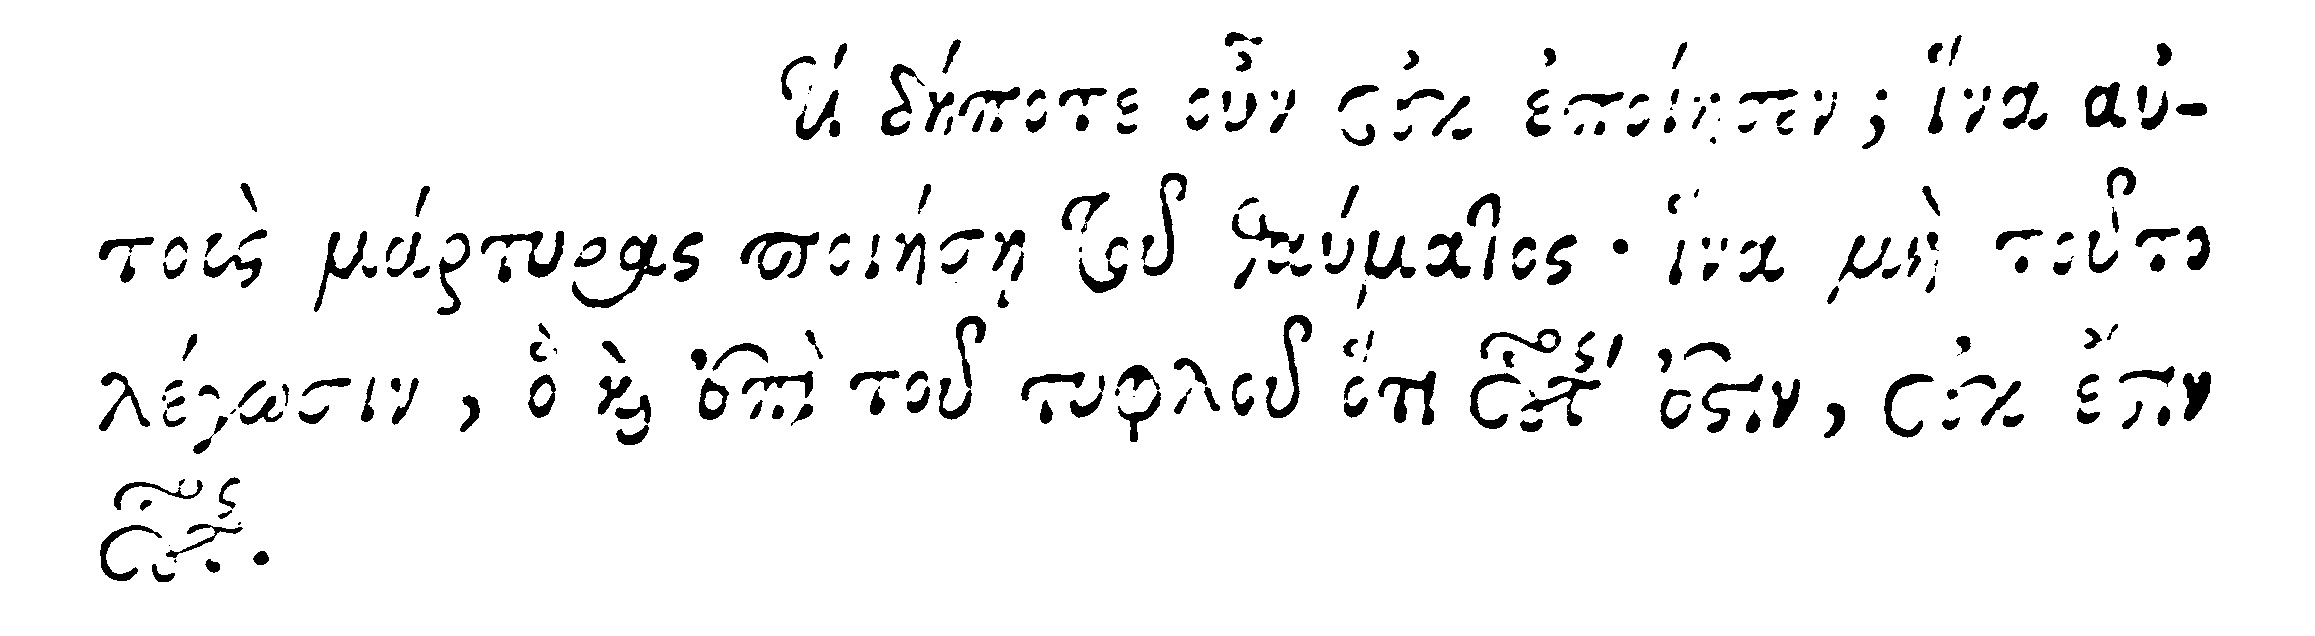 τί δήποτε οὖν οὐκ ἐποίησεν; ἵνα αὐ-
τοὺς μάρτυρας ποιήσῃ τοῦ θαύματος· ἵνα μὴ τοῦτο
λέγωσιν, ὃ καὶ ἐπὶ τοῦ τυφλοῦ ὅτι οὗτός ἐστιν, οὐκ ἔστιν
οὗτος.